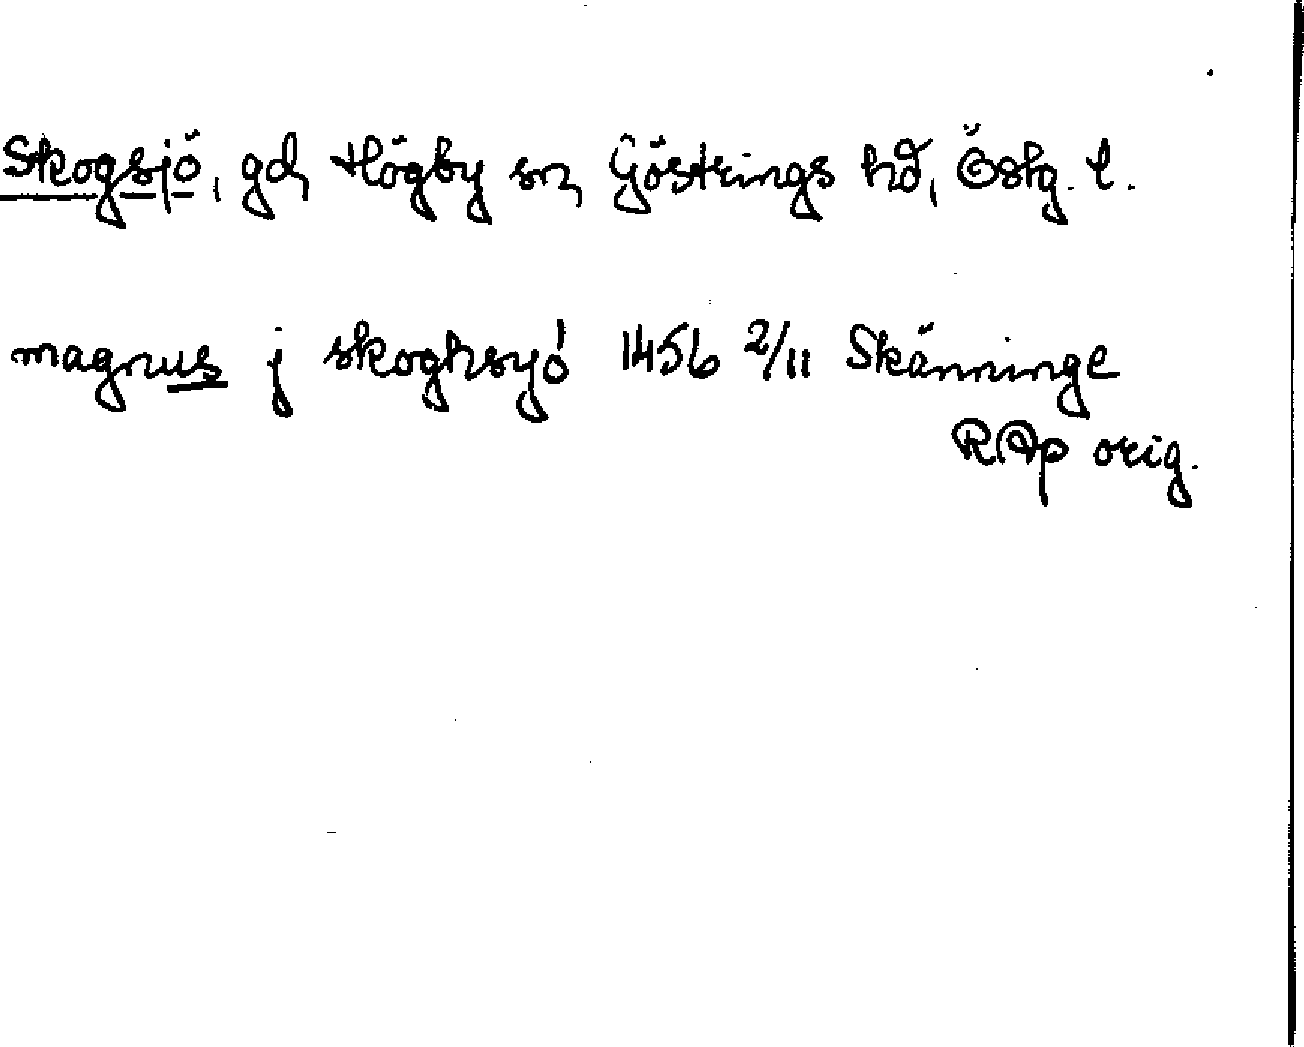 Skogsjö, gd, Högby sn, Göstrings hd, Östg. l.
magnus j skoghsyó 1456 2/11 Skänninge
RAp orig.